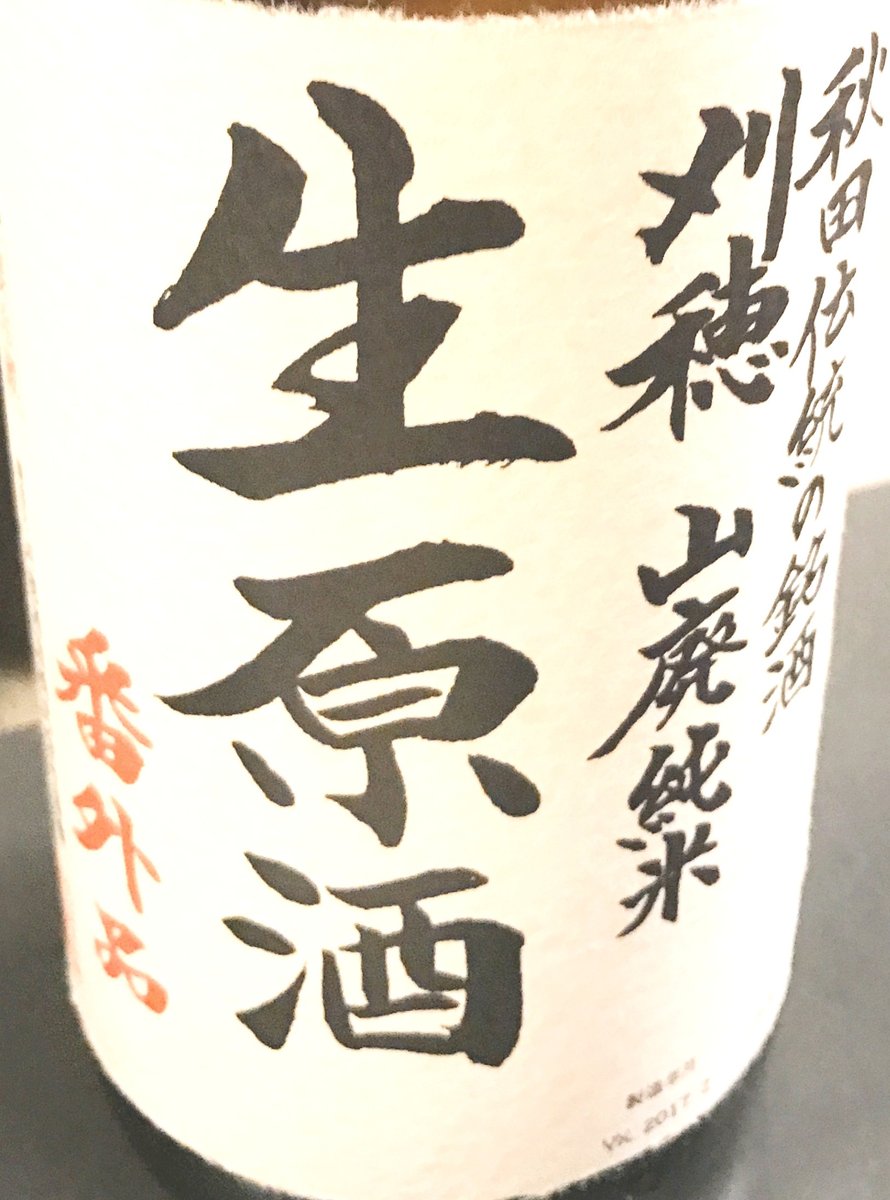 秋田伝統の銘酒
刈穂 山廃純米
生原酒
番外品
製造年月
VK. 2017. 2